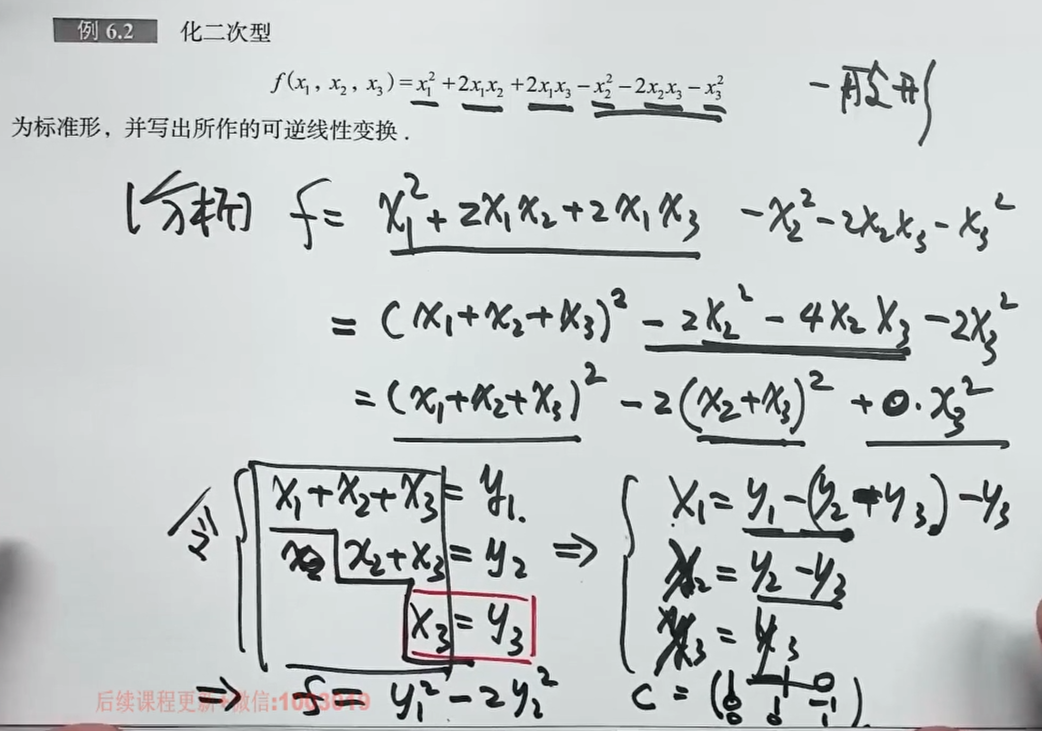 例 6.2 化二次型
f(x₁, x₂, x₃)=x₁²+2x₁x₂+2x₁x₃-x₂²-2x₂x₃-x₃² 一般形
为标准形，并写出所作的可逆线性变换.
[分析] f= x₁²+2x₁x₂+2x₁x₃ -x₂²-2x₂x₃-x₃²
= (x₁+x₂+x₃)²-2x₂²-4x₂x₃-2x₃²
=(x₁+x₂+x₃)²-2(x₂+x₃)²+0·x₃²
令 { x₁+x₂+x₃=y₁. ⇒ { x₁=y₁-(y₂-y₃)-y₃
x₂+x₃=y₂ x₂=y₂-y₃
x₃=y₃ x₃=y₃
⇒ f= y₁²-2y₂² C=
后续课程更新+微信:1003019